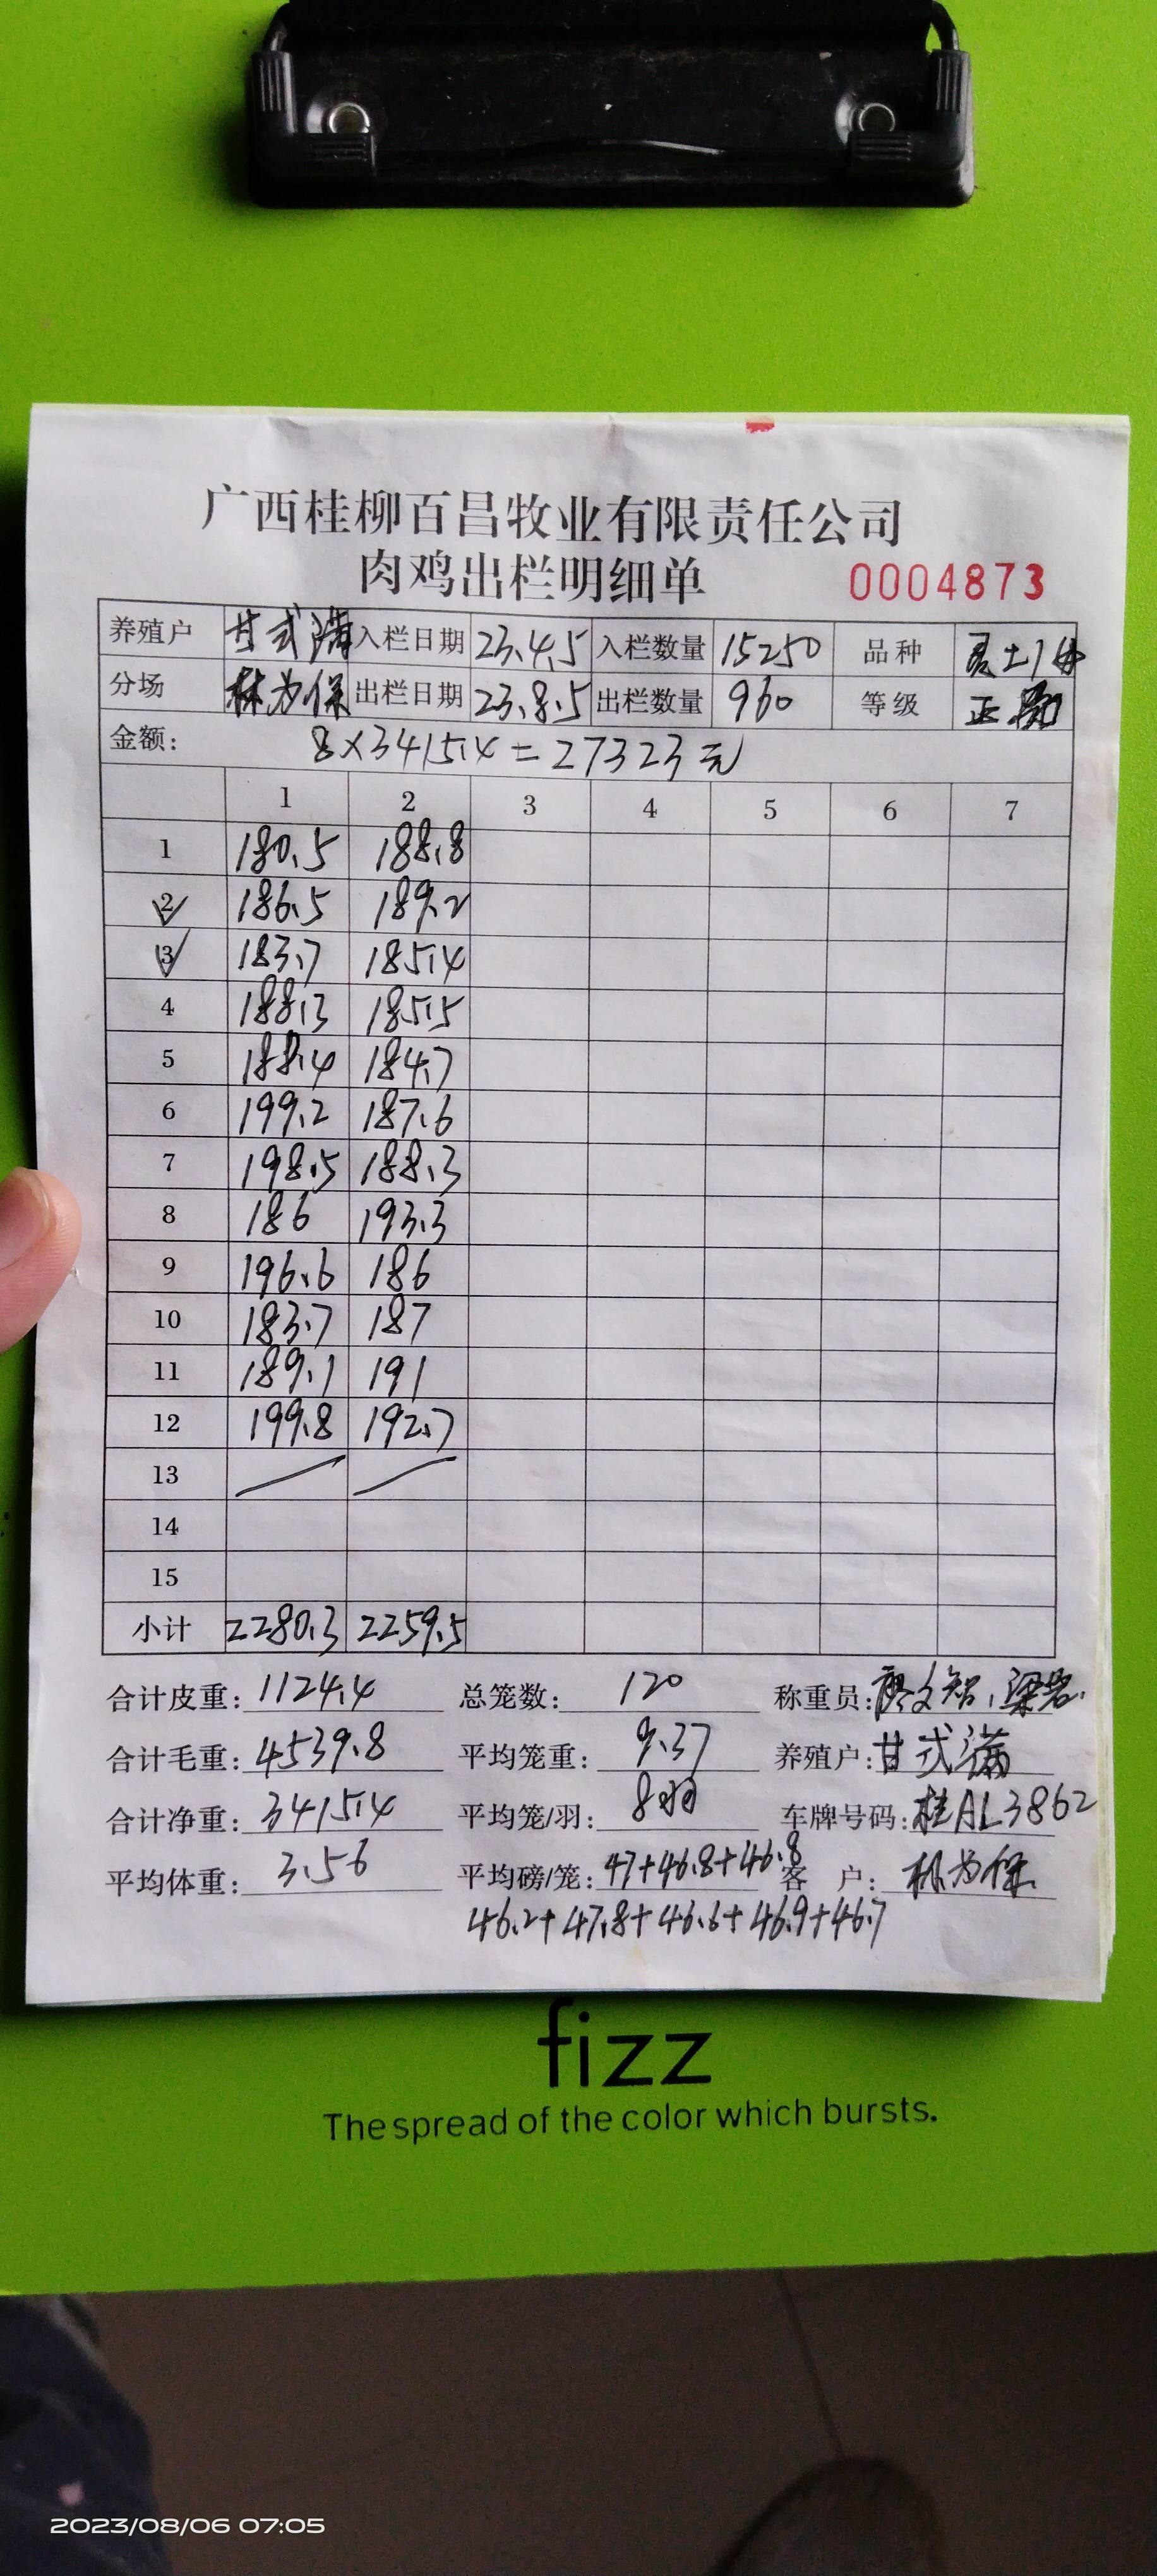 广西桂柳百昌牧业有限责任公司
肉鸡出栏明细单 0004873
养殖户 甘式满 入栏日期 23.4.5 入栏数量 15250 品种
分场 林为保 出栏日期 23.8.5 出栏数量 960 等级 正
金额: 8×3415.4=27323元
1 2 3 4 5 6 7
1 180.5 188.8
2 186.5 189.2
3 183.7 185.4
4 188.3 185.5
5 188.4 184.7
6 199.2 187.6
7 198.5 188.3
8 186 193.3
9 196.6 186
10 183.7 187
11 189.1 191
12 199.8 192.7
13
14
15
小计 2280.3 2259.5
合计皮重: 1124.4 总笼数: 120 称重员:
合计毛重: 4539.8 平均笼重: 9.37 养殖户: 甘式满
合计净重: 3415.4 平均笼/羽: 8羽 车牌号码: 桂AL3862
平均体重: 3.56 平均磅/笼: 47+46.8+46.8 客户: 林为保
46.2+47.8+46.6+46.9+46.7
fizz
The spread of the color which bursts.
2023/08/06 07:05